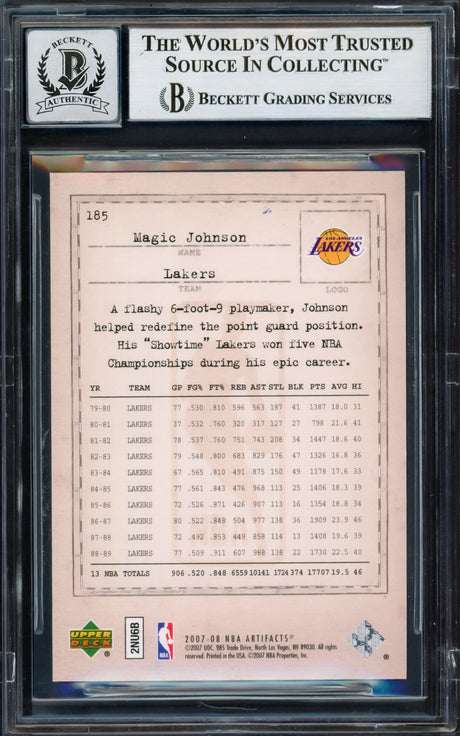 BECKETT
B
AUTHENTIC
THE WORLD'S MOST TRUSTED
SOURCE IN COLLECTING™
B BECKETT GRADING SERVICES
185
Magic Johnson
NAME
Lakers
TEAM
LOS ANGELES
LAKERS
LOGO
A flashy 6-foot-9 playmaker, Johnson
helped redefine the point guard position.
His "Showtime" Lakers won five NBA
Championships during his epic career.
YR TEAM GP FG% FT% REB AST STL BLK PTS AVG HI
79-80 LAKERS 77 .530 .810 596 563 187 41 1387 18.0 31
80-81 LAKERS 37 .532 .760 320 317 127 27 798 21.6 41
81-82 LAKERS 78 .537 .760 751 743 208 34 1447 18.6 40
82-83 LAKERS 79 .548 .800 683 829 176 47 1326 16.8 36
83-84 LAKERS 67 .565 .810 491 875 150 49 1178 17.6 33
84-85 LAKERS 77 .561 .843 476 968 113 25 1406 18.3 39
85-86 LAKERS 72 .526 .871 426 907 113 16 1354 18.8 34
86-87 LAKERS 80 .522 .848 504 977 138 36 1909 23.9 46
87-88 LAKERS 72 .492 .853 449 858 114 13 1408 19.6 39
88-89 LAKERS 77 .509 .911 607 988 138 22 1730 22.5 40
13 NBA TOTALS 906 .520 .848 6559 10141 1724 374 17707 19.5 46
UPPER
DECK
®
2NU6B
NBA
2007-08 NBA ARTIFACTS®
©2007 UDC. 985 Trade Drive, North Las Vegas, NV 89030. All rights
reserved. Printed in the USA. ©2007 NBA Properties, Inc.
®